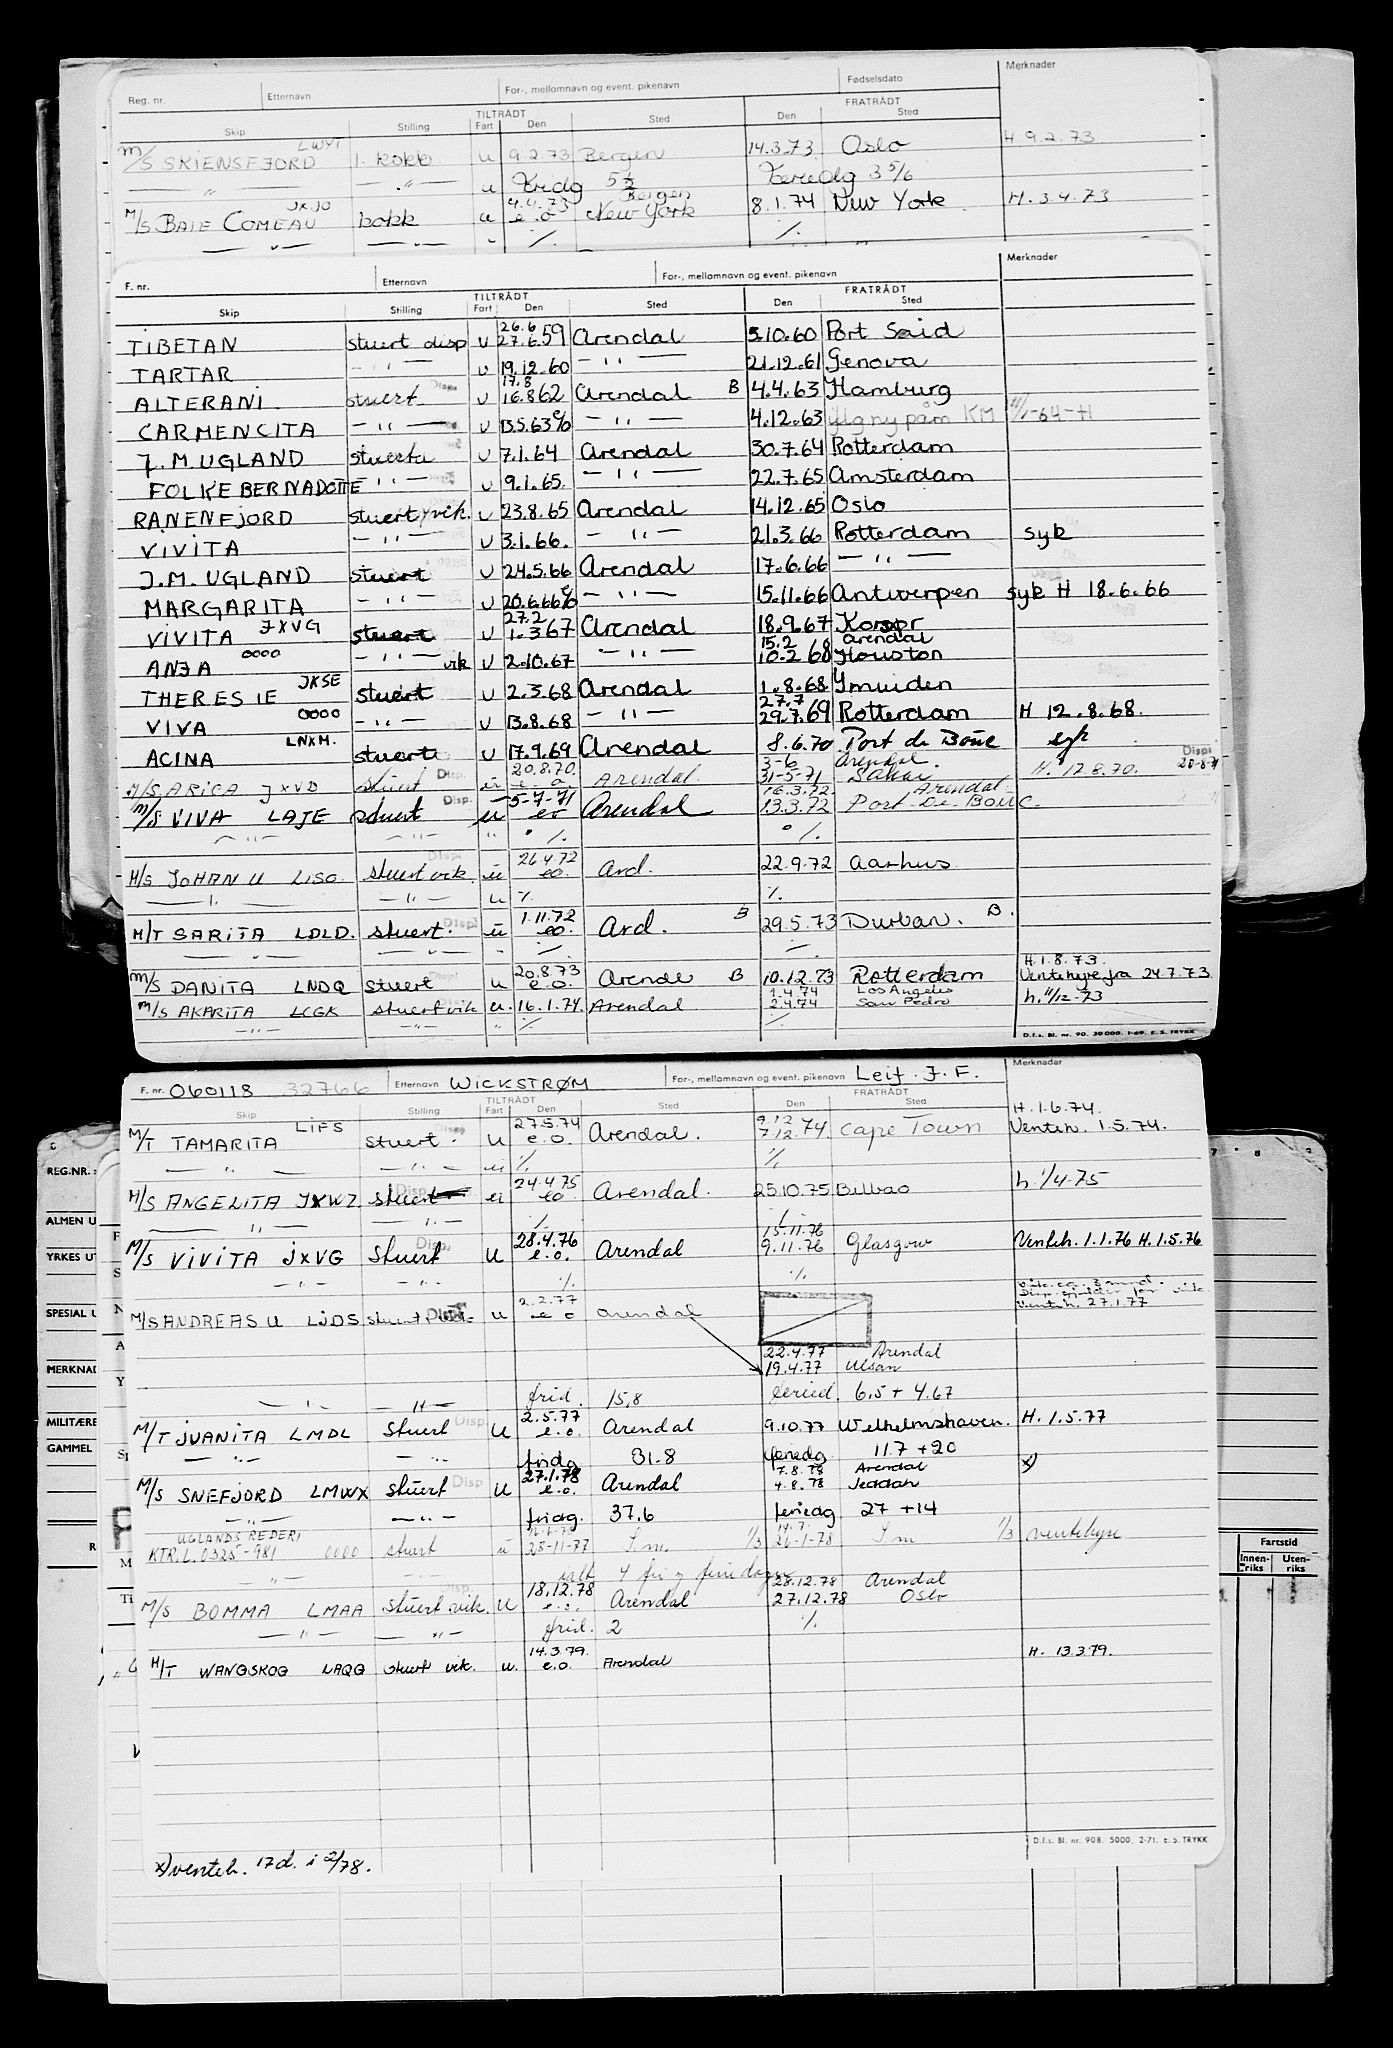 Reg. nr. Etternavn For-, mellomnavn og event. pikenavn Fødselsdato Merknader
TILTRÅDT FRATRÅDT
Skip Stilling Fart Den Sted Den Sted
M/S SKIENSFJORD LWYT 1. kokk u 9.2.73 Bergen 14.3.73 Oslo H 9.2.73
— " — — " — u Fridg 5½ Feriedg 3 5/6
M/S BAIE COMEAU JXJO kokk u 4.4.73 Bergen e.o New York 8.1.74 New York H. 3.4.73
— " — — " — " %. %.
F. nr. Etternavn For-, mellomnavn og event. pikenavn Merknader
TILTRÅDT FRATRÅDT
Skip Stilling Fart Den Sted Den Sted
TIBETAN stuert disp u 26.6 27.6.59 Arendal 5.10.60 Port Said
TARTAR — " — u 19.12.60 — " — 21.12.61 Genova
ALTERANI stuert Disp. u 17.8 16.8.62 Arendal B 4.4.63 Hamburg
CARMENCITA — " — u 13.5.63 % — " — 4.12.63
J.M. UGLAND stuert u 7.1.64 Arendal 30.7.64 Rotterdam
FOLKE BERNADOTTE — " — u 9.1.65. — " — 22.7.65 Amsterdam
RANENFJORD stuert vik. u 23.8.65 Arendal 14.12.65 Oslo
VIVITA — " — u 3.1.66. — " — 21.3.66 Rotterdam syk
J.M. UGLAND stuert u 24.5.66 Arendal 17.6.66 — " —
MARGARITA — " — u 20.6.66 % — " — 15.11.66 Antwerpen syk H 18.6.66
VIVITA JXVG stuert u 27.2 1.3.67 Arendal 18.9.67 Korsør
ANJA 0000 — " — vik u 2.10.67 — " — 15.2 10.2 68 Arendal Houston
THERESIE JKSE stuert u 2.3.68 Arendal 1.8.68 Ymuiden
VIVA 0000 — " — u 13.8.68 — " — 27.7 29.7.69 Rotterdam H 12.8.68.
ACINA LNXM. stuert u 17.9.69 Arendal 8.6.70 Port de Bouc syk
M/S ARICA JXVD stuert Disp. u 20.8.70. e o Arendal 3-6 31-5-71 Arendal. Dakar H. 17.8.70. Disp! 20-8-71
M/S VIVA LAJE stuert Disp. u 5-7-71 eo Arendal 16.3.72 13.3.72 Arendal Port-De-Bouc.
— " — — " — u %. %.
M/S JOHAN U LISO. stuert vik. u 26.4.72 eo. Ard. 22.9.72 Aarhus
— " — — " — u %. %.
M/T SARITA LDLD. stuert. Disp! u 1.11.72 eo. Ard. B 29.5.73 Durban. B.
— " — — " — " %. %
M/S DANITA LNDQ stuert u 20.8.73 e.o. Arendal B 10.12.73 Rotterdam H.1.8.73. Ventehyre fra 24.7.73
M/S AKARITA LCGK stuert vik u. 16.1.74. Arendal 1.4.74 2.4.74 Los Angeles San Pedro h. 11/12-73
— " — — " — " % %.
D.f.s. Bl. nr. 90. 30000. 1-69. E. S. TRYKK
F. nr. 060118 32766 Etternavn WICKSTRØM For-, mellomnavn og event. pikenavn Leif. J. F. Merknader
TILTRÅDT FRATRÅDT
Skip Stilling Fart Den Sted Den Sted
M/T TAMARITA LIFS stuert. u 27.5.74 e.o. Arendal. 9.12 7.12.74. Cape Town H. 1.6.74. Venteh. 1.5.74.
— " — — " — u %. %.
M/S ANGELITA JXWZ stuert u 24.4.75 eo Arendal. 25.10.75 Bilbao h. 1/4-75
— " — — " — %. %.
M/S VIVITA JXVG Stuert Disp. u 28.4.76 e.o. Arendal 15.11.76 9.11.76 Glasgow Venteh. 1.1.76 H. 1.5.76
— " — — " — %. %.
M/S ANDREAS U LJDS stuert u 2.2.77 e o Arendal Vik. ca. 3 mnd. Disp. gjelder for vik. Venteh. 27.1.77
22.4.77 Arendal
19.4.77 Ulsan
— " — — " — frid. 15,8 feried. 6,5 + 4.67
M/T JUANITA LMDL Stuert Disp. u 2.5.77 e.o. Arendal 9.10.77 Welhelmshaven. H. 1.5.77
— " — — " — fridg 31.8 feriedg 11.7 + 20
M/S SNEFJORD LMWX Stuert Disp u 27.1.78 e.o. Arendal 7.8.78 4.8.78 Arendal Jeddah x)
— " — — " — fridg. 37.6 feriedg 27 + 14
UGLANDS REDERI
KTR.L.0325-981 0000 stuert u 28-11-77 1/3 26-1-78 1/3 ventehyre
— " — — " — 4 fri g feriedager
M/S BOMMA LMAA Stuert vik. u 18.12.78 e.o. Arendal 28.12.78 27.12.78 Arendal Oslo
— " — — " — frid. 2 %.
M/T WANGSKOG LAQG stuert vik. u. 14.3.79. e.o. Arendal H. 13.3.79.
D.f.s. Bl. nr. 908. 5000. 2-71. E. S. TRYKK
x) venteh. 17 d. i 2/78.
REG.NR. :
ALMEN U
YRKES UT
SPESIAL U
MERKNAD
MILITÆRE
GAMMEL
Fartstid
Innen-riks Uten-riks